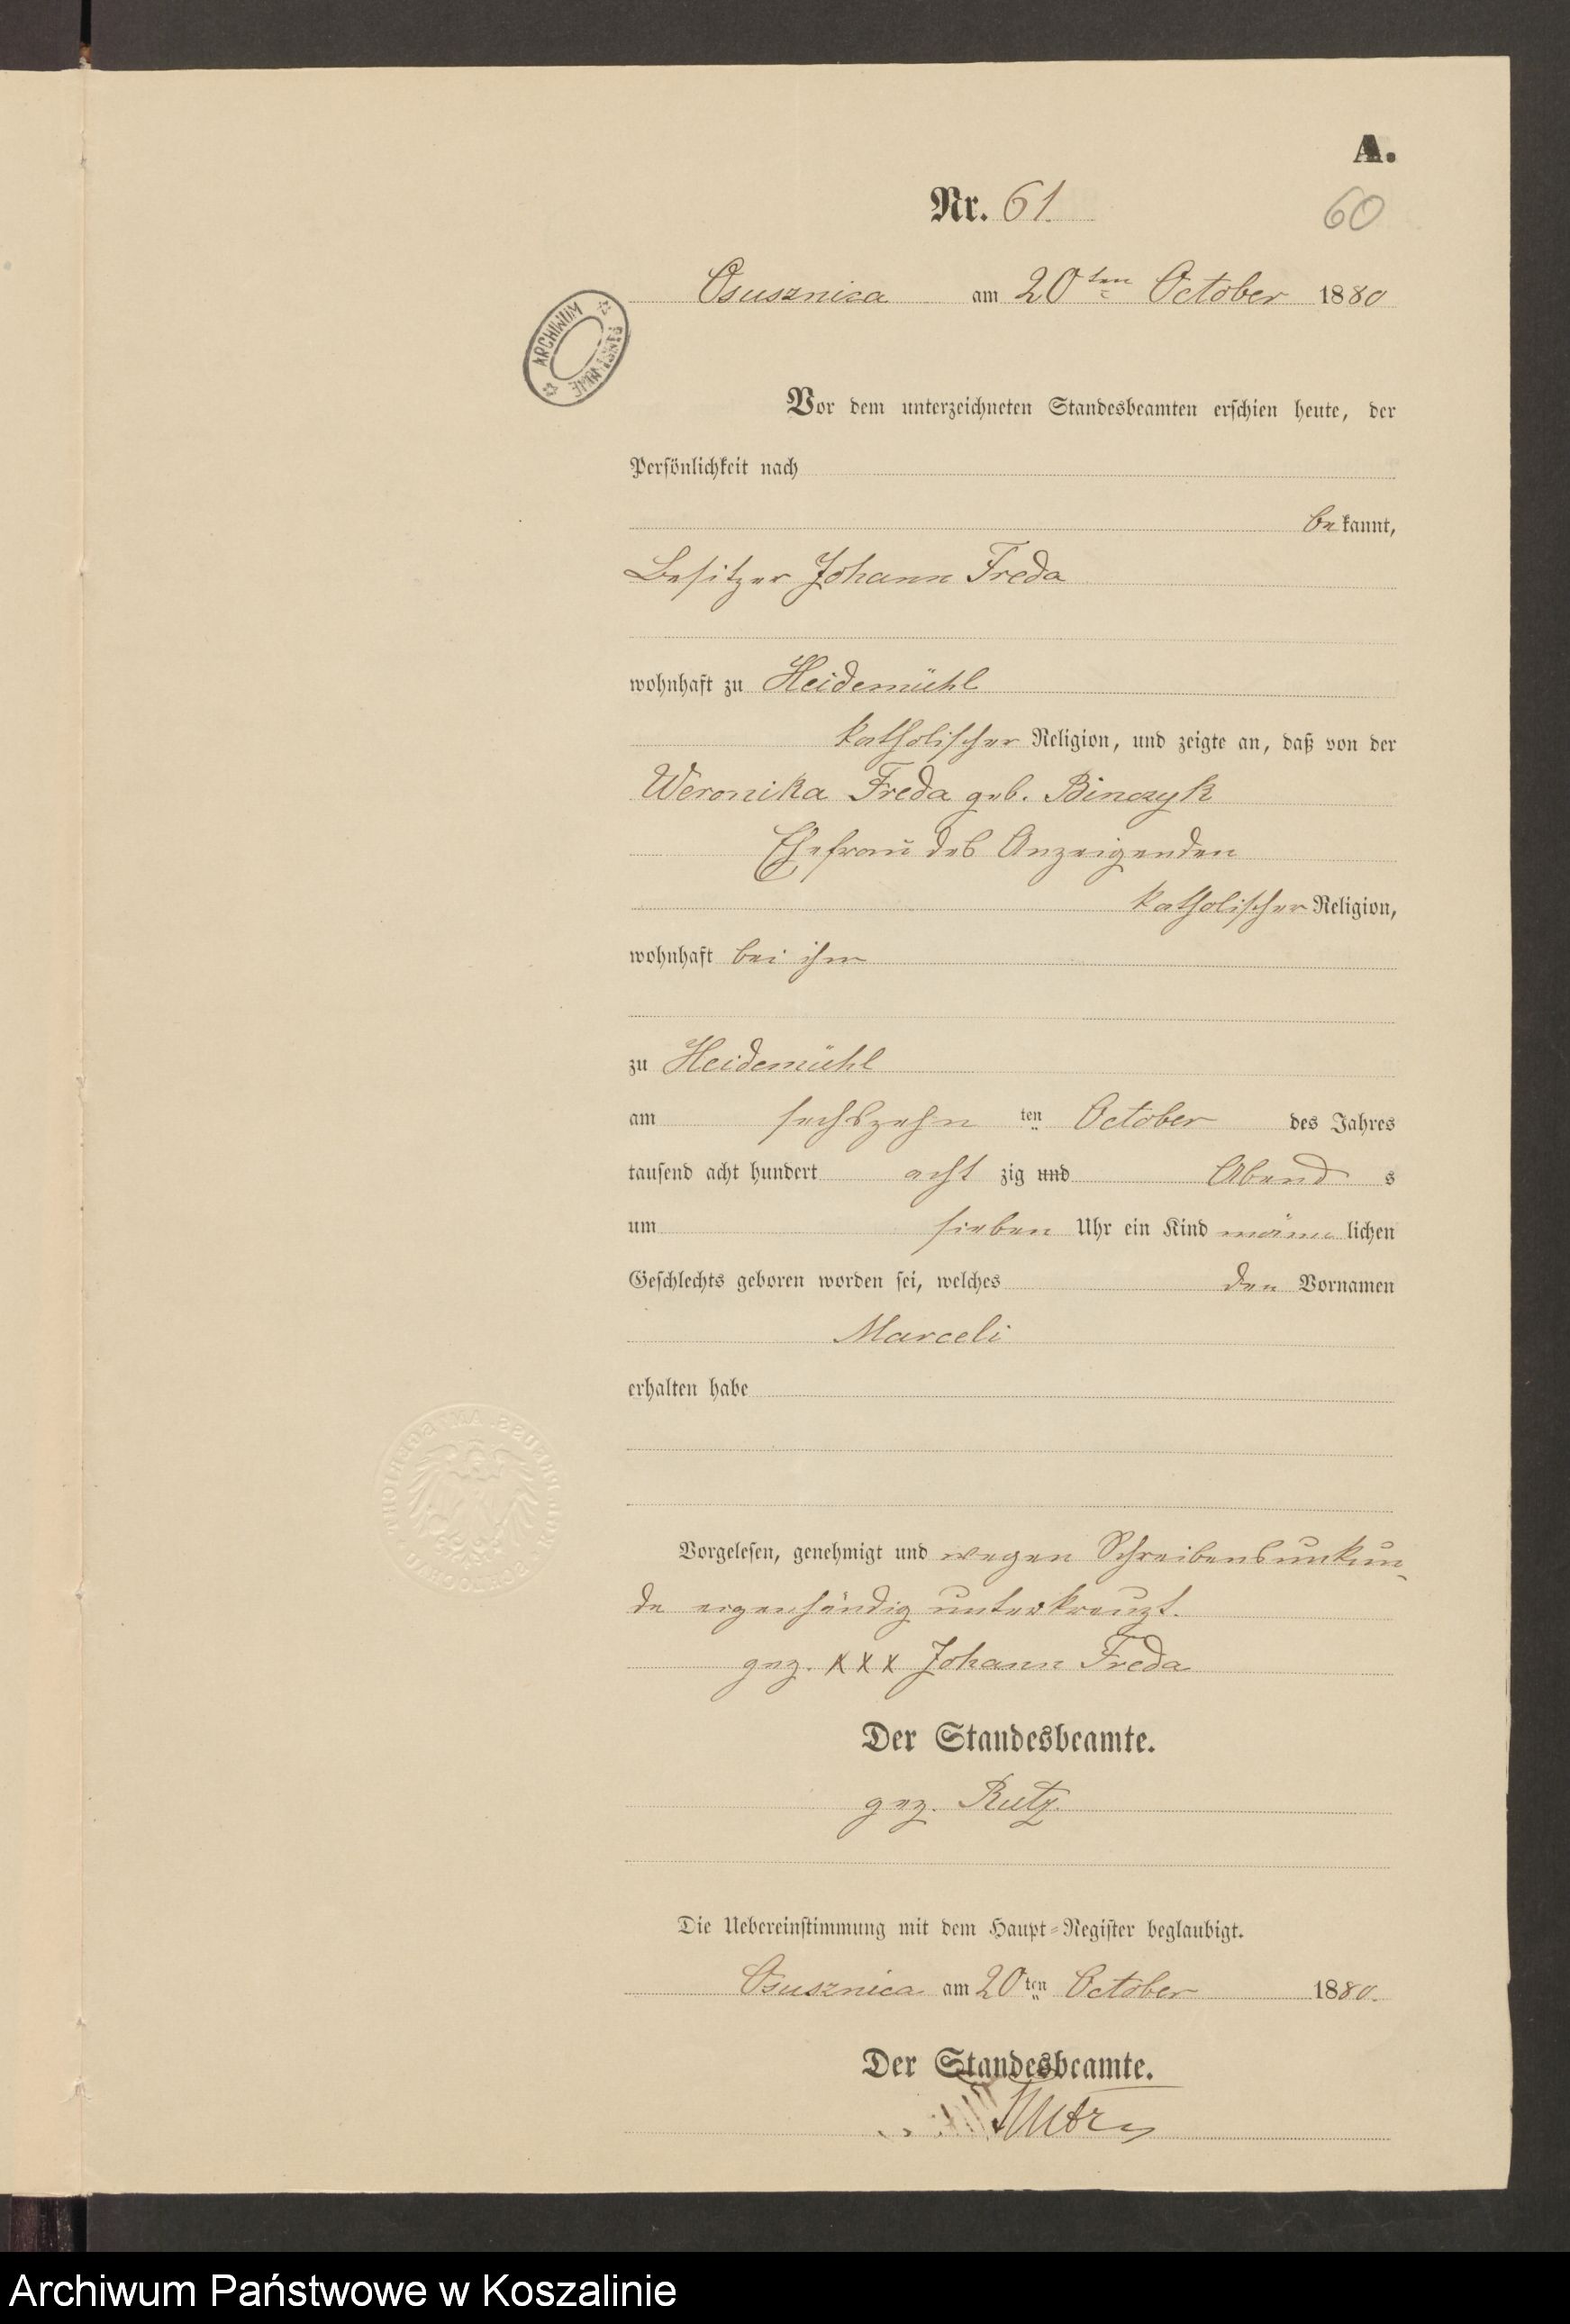 A.
Nr. 61.
60
Osusznica am 20ten October 1880
ARCHIWUM PAŃSTWOWE
Vor dem unterzeichneten Standesbeamten erschien heute, der
Persönlichkeit nach
bekannt,
Besitzer Johann Freda
wohnhaft zu Heidemühl
katholischer Religion, und zeigte an, daß von der
Weronika Freda geb. Binczyk
Ehefrau des Anzeigenden
katholischer Religion,
wohnhaft bei ihm
zu Heidemühl
am sechszehn ten October des Jahres
tausend acht hundert acht zig und Abend s
um sieben Uhr ein Kind männlichen
Geschlechts geboren worden sei, welches den Vornamen
Marceli
erhalten habe
Vorgelesen, genehmigt und wegen Schreibensunkun-
de eigenhändig unterkreuzt.
gez. XXX Johann Freda
Der Standesbeamte.
gez. Rutz.
Die Uebereinstimmung mit dem Haupt-Register beglaubigt.
Osusznica am 20ten October 1880.
Der Standesbeamte.
Rutz
Archiwum Państwowe w Koszalinie